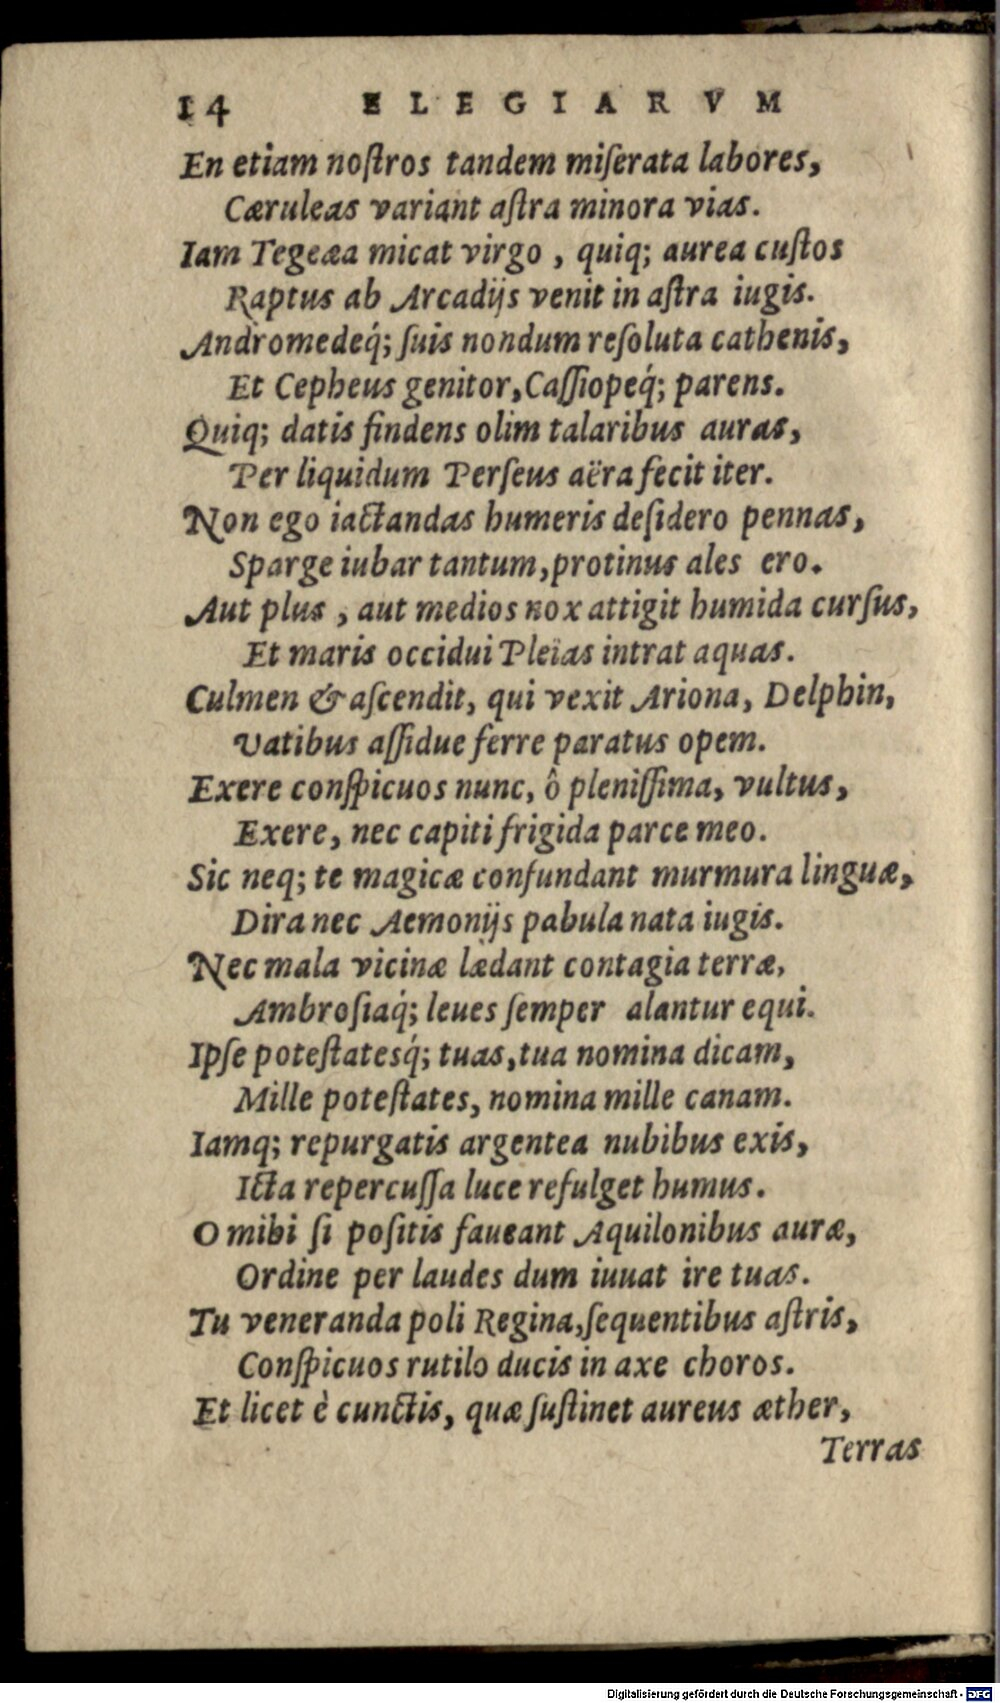 14 ELEGIARVM
En etiam noſtros tandem miſerata labores,
Cæruleas variant aſtra minora vias.
Iam Tegeæa micat virgo, quiq; aurea cuſtos
Raptus ab Arcadijs venit in aſtra iugis.
Andromedeq́; ſuis nondum reſoluta cathenis,
Et Cepheus genitor, Caſſiopeq́; parens.
Quiq; datis findens olim talaribus auras,
Per liquidum Perſeus aëra fecit iter.
Non ego iactandas humeris deſidero pennas,
Sparge iubar tantum, protinus ales ero.
Aut plus, aut medios nox attigit humida curſus,
Et maris occidui Pleïas intrat aquas.
Culmen & aſcendit, qui vexit Ariona, Delphin,
Vatibus aſſidue ferre paratus opem.
Exere conſpicuos nunc, ô pleniſſima, vultus,
Exere, nec capiti frigida parce meo.
Sic neq; te magicæ confundant murmura linguæ,
Dira nec Aemonijs pabula nata iugis.
Nec mala vicinæ lædant contagia terræ,
Ambroſiaq́; leues ſemper alantur equi.
Ipſe poteſtatesq́; tuas, tua nomina dicam,
Mille poteſtates, nomina mille canam.
Iamq; repurgatis argentea nubibus exis,
Icta repercuſſa luce refulget humus.
O mihi ſi poſitis faueant Aquilonibus auræ,
Ordine per laudes dum iuuat ire tuas.
Tu veneranda poli Regina, ſequentibus aſtris,
Conſpicuos rutilo ducis in axe choros.
Et licet è cunctis, quæ ſuſtinet aureus æther,
Terras
Digitalisierung gefördert durch die Deutsche Forschungsgemeinschaft - DFG